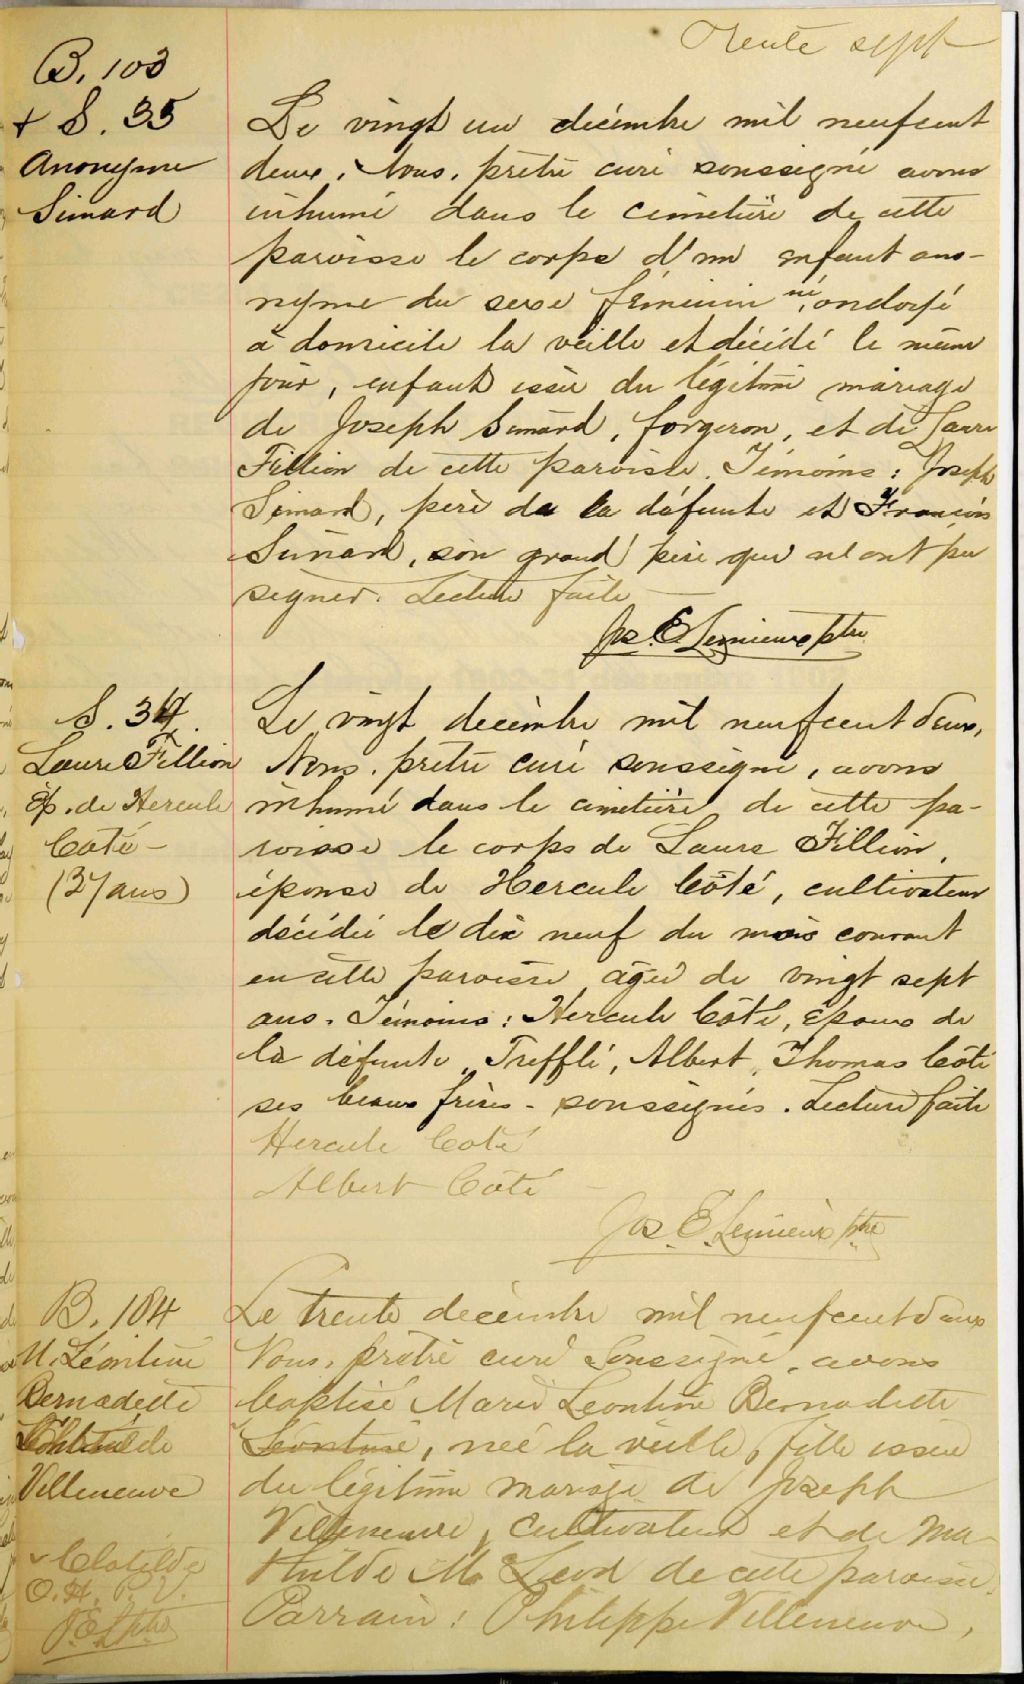 Trente sept
B. 103
+ S. 35
Anonyme
Simard
Le vingt un décembre mil neufcent
deux, Nous, prêtre curé soussigné avons
inhumé dans le cimetière de cette
paroisse le corps d'un enfant ano-
nyme du sexe féminin né, ondoyé
à domicile la veille et décédé le même
jour, enfant issue du légitime mariage
de Joseph Simard, forgeron, et de Laure
Fillion de cette paroisse. Témoins : Joseph
Simard, père de la défunte et François
Simard, son grand père qui n'ont pu
signer. Lecture faite
Jos. E. Lemieux ptre
S. 34
Laure Fillion
Ép. de Hercule
Coté -
(27 ans)
Le vingt decembre mil neufcent deux,
Nous, prêtre curé soussigné, avons
inhumé dans le cimetière de cette pa-
roisse le corps de Laure Fillion,
épouse de Hercule Côté, cultivateur
décédée le dix neuf du mois courant
en cette paroisse agée de vingt sept
ans. Témoins : Hercule Côté, Époux de
la défunte, Trefflé, Albert, Thomas Côté
ses beaux frères - soussignés. Lecture faite
Hercule Coté
Albert Côté
Jos. E. Lemieux ptre
B. 104
M. Léontine
Bernadette
Clotilde
Villeneuve
Le trente décembre mil neufcent deux
Nous, prêtre curé soussigné, avons
baptisé Marie Leontine Bernadette
Léontine, née la veille, fille issue
du légitime mariage de Joseph
Villeneuve, cultivateur et de Ma-
thilde Mc Leod de cette paroisse.
Parrain : Philippe Villeneuve,
v Clotilde
O. H. P. V.
J. E. L. ptre